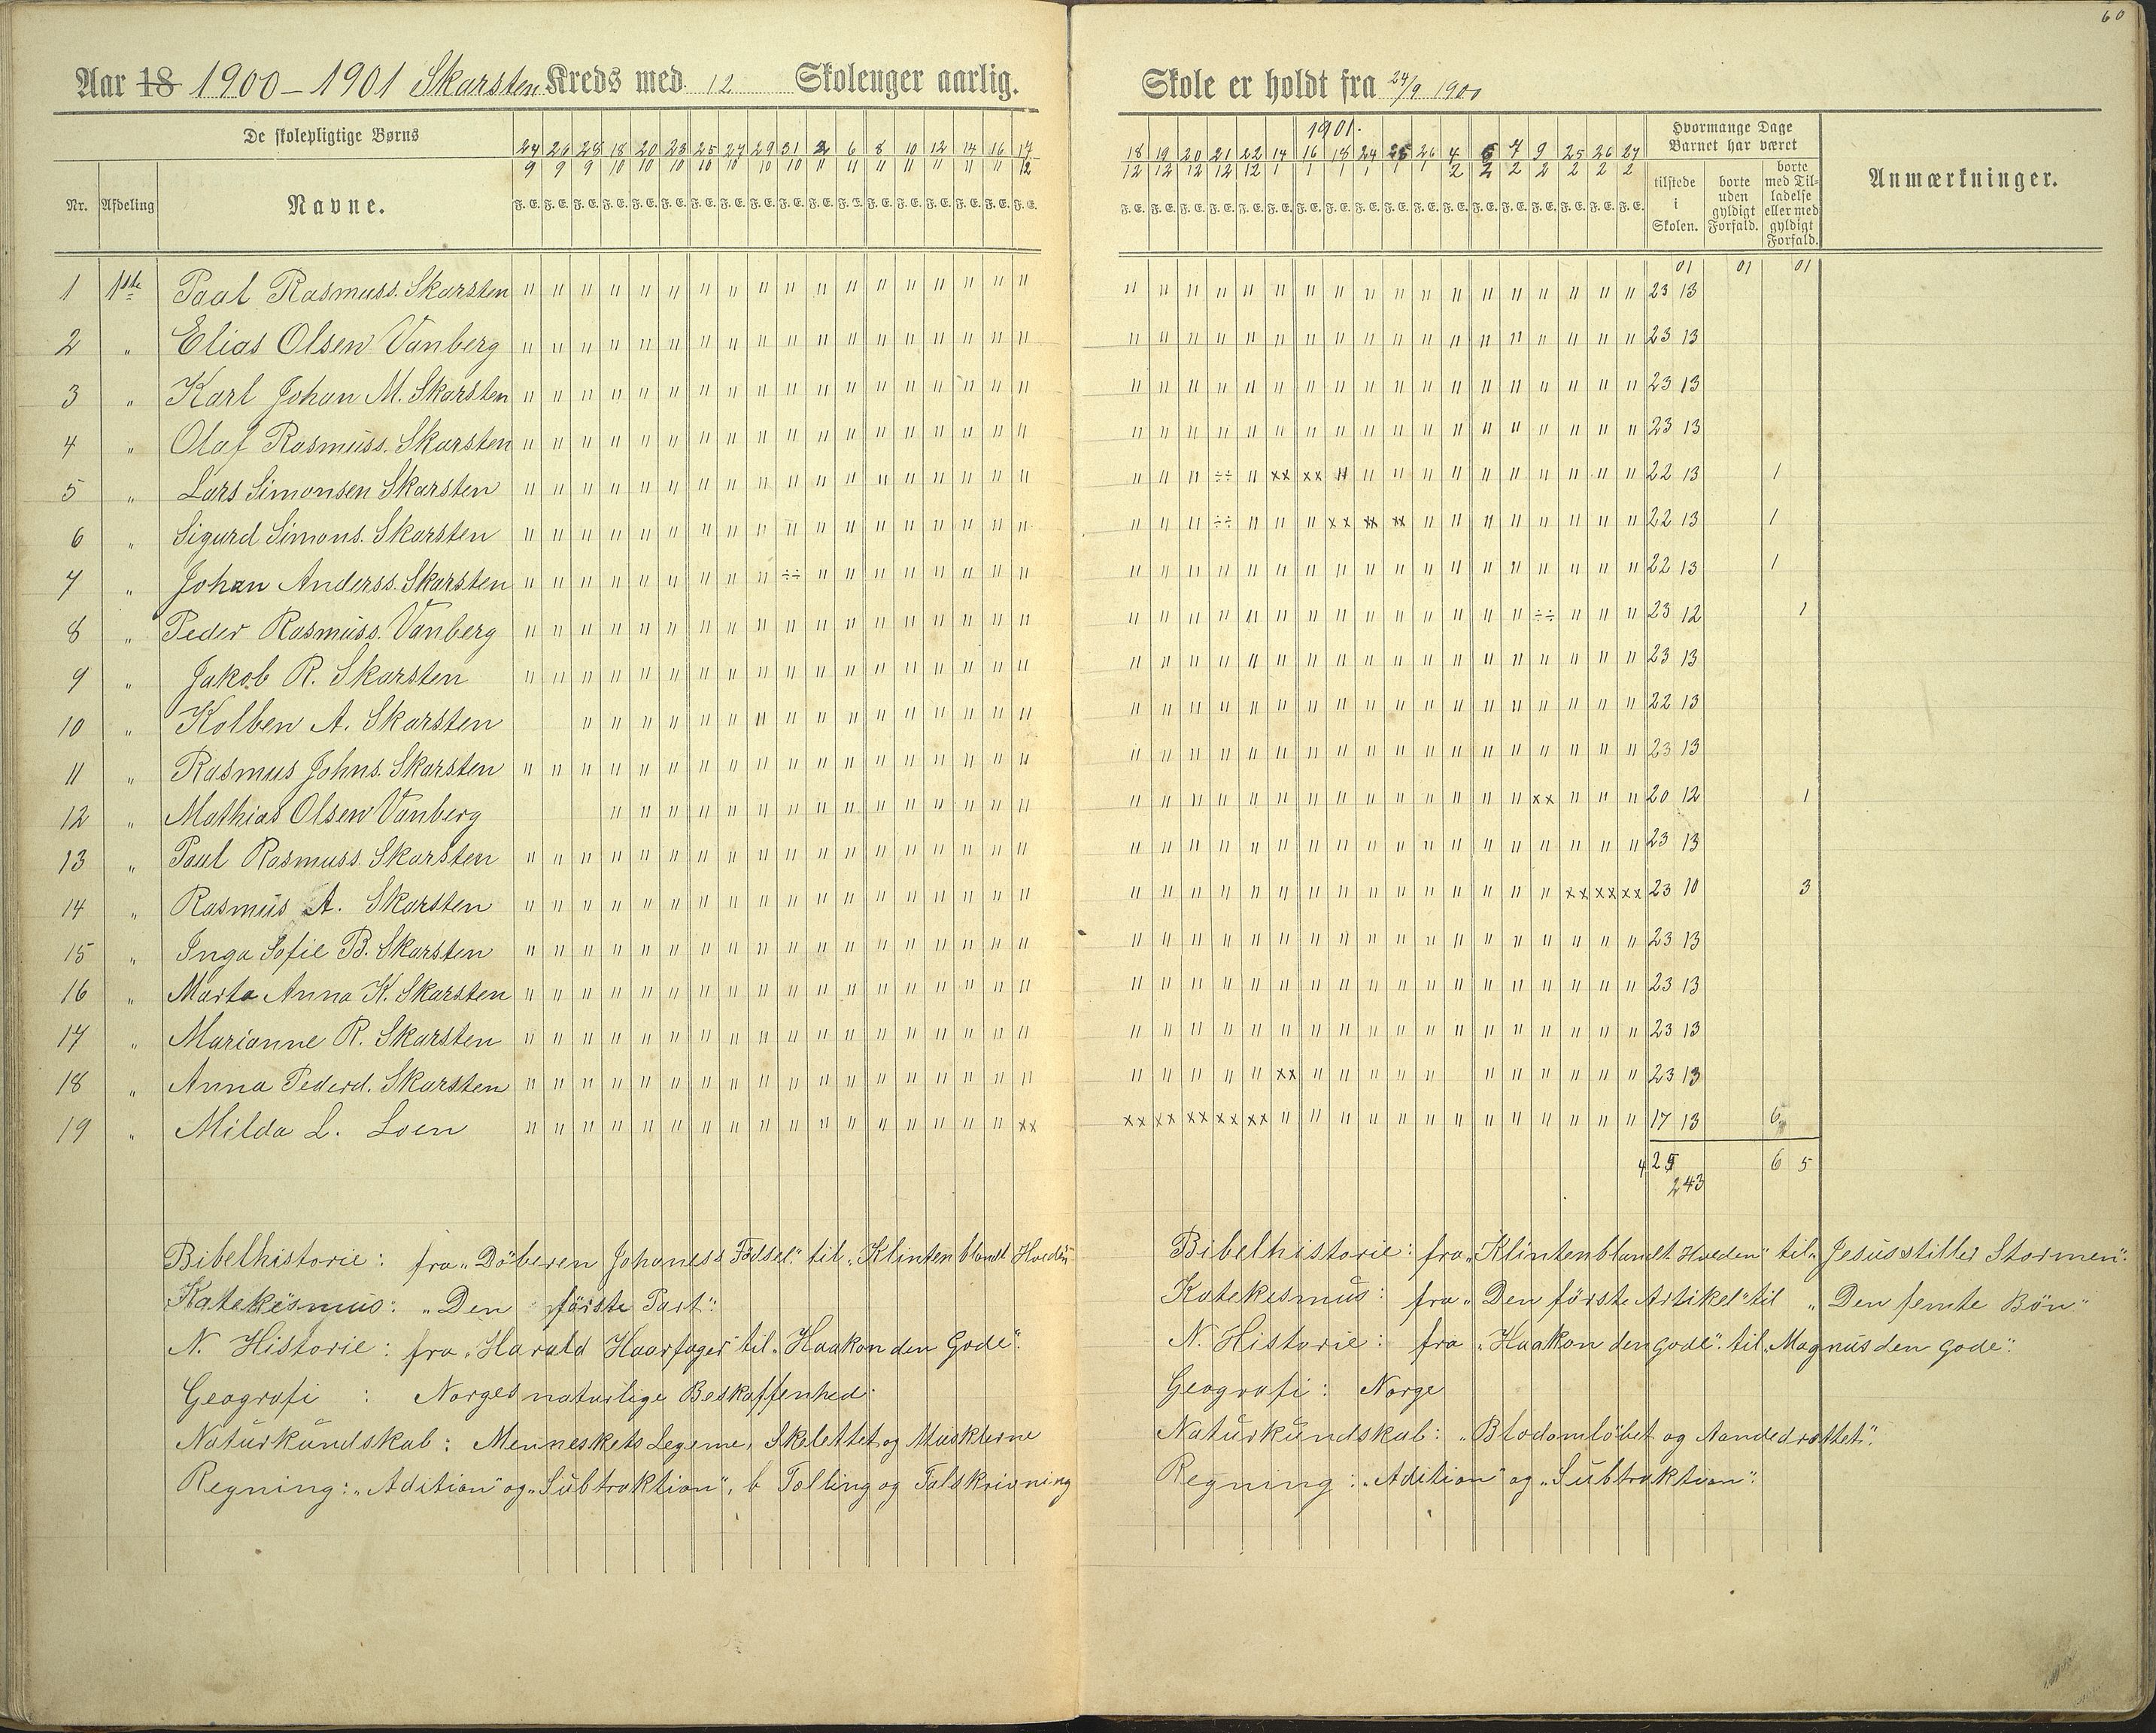 60
Aar 18 1900–1901 Skarsten Kreds med 12 Skoleuger aarlig.
Skole er holdt fra 24/9 1900
De skolepligtige Børns
Nr. Afdeling Navne.
24/9 26/9 28/9 18/10 20/10 23/10 25/10 27/10 29/10 31/10 2/11 6/11 8/11 10/11 12/11 14/11 16/11 17/12
F. E. F. E. F. E. F. E. F. E. F. E. F. E. F. E. F. E. F. E. F. E. F. E. F. E. F. E. F. E. F. E. F. E. F. E.
1901.
18/12 19/12 20/12 21/12 22/12 14/1 16/1 18/1 24/1 25/1 26/1 4/2 5/2 7/2 9/2 25/2 26/2 27/2
F. E. F. E. F. E. F. E. F. E. F. E. F. E. F. E. F. E. F. E. F. E. F. E. F. E. F. E. F. E. F. E. F. E. F. E.
Hvormange Dage Barnet har været
tilstede i Skolen.
borte uden gyldigt Forfald.
borte med Tilladelse eller med gyldigt Forfald.
Anmærkninger.
01 01 01
1 1ste Paal Rasmuss. Skarsten 23 13
2 " Elias Olsen Vanberg 23 13
3 " Karl Johan M. Skarsten 23 13
4 " Olaf Rasmuss. Skarsten 23 13
5 " Lars Simonsen Skarsten ÷÷ xx xx 22 13 1
6 " Sigurd Simons. Skarsten ÷÷ xx xx xx 22 13 1
7 " Johan Anderss. Skarsten ÷÷ 22 13 1
8 " Peder Rasmuss. Vanberg ÷÷ 23 12 1
9 " Jakob R. Skarsten 23 13
10 " Kolben A. Skarsten 22 13
11 " Rasmus Johns. Skarsten 23 13
12 " Mathias Olsen Vanberg xx 20 12 1
13 " Paul Rasmuss. Skarsten 23 13
14 " Rasmus A. Skarsten xx xx xx 23 10 3
15 " Inga Sofie B. Skarsten 23 13
16 " Marta Anna K. Skarsten 23 13
17 " Marianne R. Skarsten 23 13
18 " Anna Pedersd. Skarsten xx 23 13
19 " Milda L. Loen xx xx xx xx xx xx 17 13 6
425 6 5
243
Bibelhistorie: fra „Döberen Johaness Födsel." til „Klinten blandt Hveden"
Katekismus: „Den förste Part".
N. Historie: fra „Harald Haarfager" til „Haakon den Gode".
Geografi : Norges naturlige Beskaffenhed.
Naturkundskab: Menneskets Legeme, Skelettet og Musklerne
Regning: „Adition" og „Subtraktion", b Tælling og Talskrivning
Bibelhistorie: fra „Klinten blandt Hveden" til „Jesus stiller Stormen".
Katekesmus: fra „Den förste Artikel" til „Den femte Bön"
N. Historie: fra „Haakon den gode". til „Magnus den gode".
Geografi: Norge
Naturkundskab: „Blodomlöbet og Aandedrættet".
Regning: „Adition" og „Subtraktion".